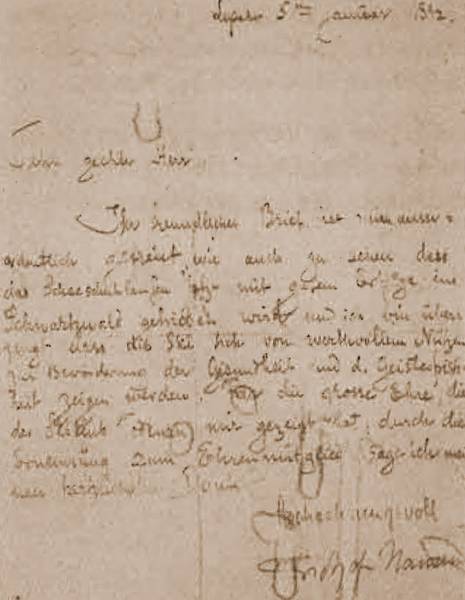 5ten Januar 1892.
Sehr geehrter Herr,
Ihr freundlicher Brief ist
ordentlich gefreut wie auch zu sehen dass
das Schneeschuhlaufen jetzt mit gutem Erfolge im
Schwartzwald getrieben wird und ich bin über
zeugt dass die Ski sich von werthvollem Nutzen
zur Beförderung der Gesundheit und d.
keit zeigen werden. Für die grosse Ehre die
der Ski Club mir gezeigt hat, durch die
Ernennung zum Ehrenmitglied sage ich mei
nen herzlichen
Hochachtungsvoll
Fridtjof Nansen